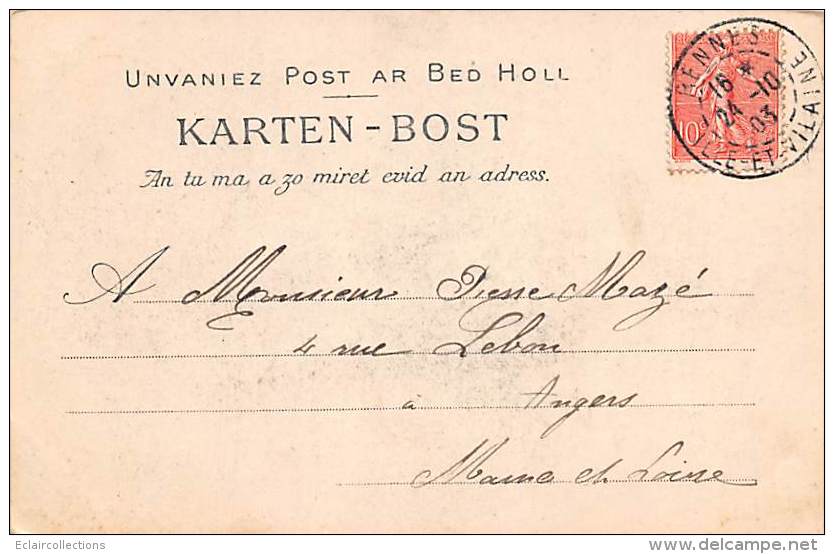 UNVANIEZ POST AR BED HOLL
KARTEN-BOST
An tu ma a zo miret evid an adress.
RENNES
ILLE-ET-VILAINE
16 *
24 -10
03
10
A Monsieur Pierre Mazé
4 rue Lebon
à Angers
Maine et Loire
Eclaircollections
delcampe.net